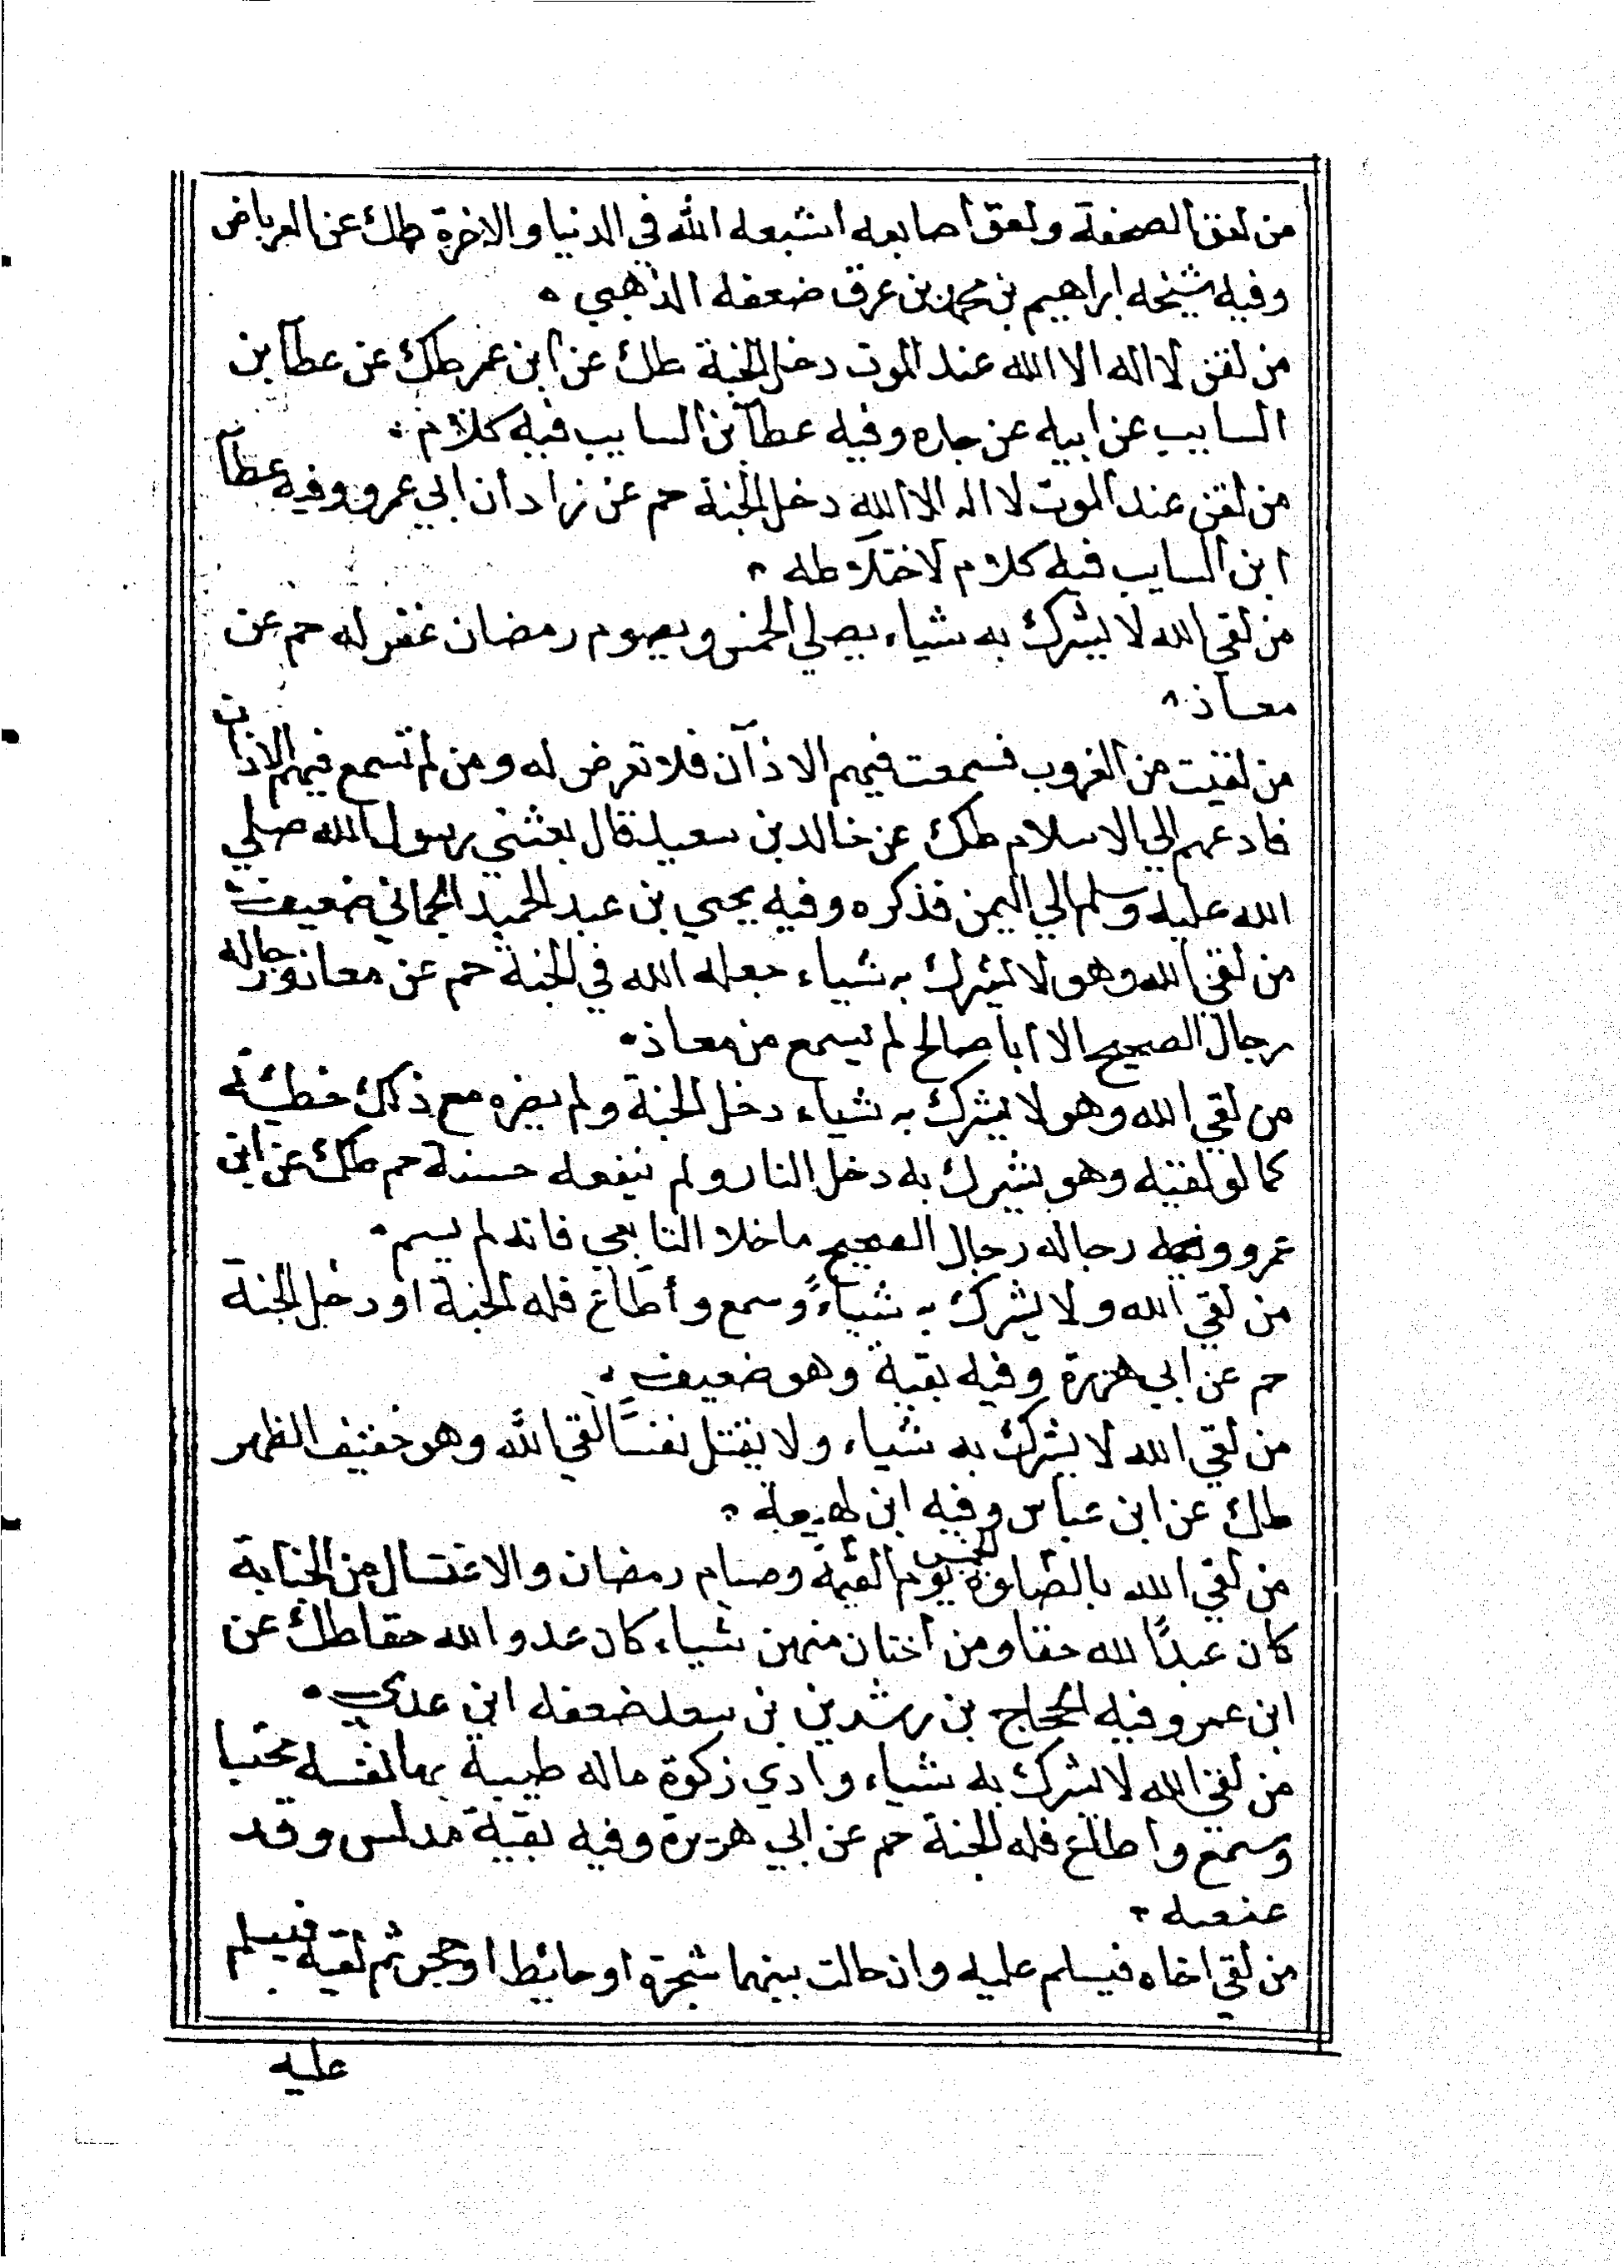 من لعق الصحفة ولعق أصابعه اشبعه الله في الدنيا والاخرة طك عن العرباض
وفيه شيخه ابراهيم بن محمد بن عرق ضعفه الذهبي
من لقن لا اله الا الله عند الموت دخل الجنة طك عن ابن عمر طك عن عطآ بن
السايب عن ابيه عن جده وفيه عطآ بن السايب فيه كلام
من لقن عند الموت لا اله الا الله دخل الجنة حم عن زادان ابي عمرو وفيه عطآ
ابن السايب فيه كلام لاختلاطه
من لقي الله لا يشرك به شياء يصلي الخمس ويصوم رمضان غفر له حم عن
معاذ
من لقيت من العرب فسمعت فيهم الاذآن فلا تعرض له ومن لم تسمع فيهم الاذان
فادعهم الي الاسلام طك عن خالد بن سعيد قال بعثني رسول الله صلي
الله عليه وسلم الي اليمن فذكره وفيه يحيي بن عبد الحميد الحماني ضعيف
من لقي الله وهو لا يشرك به شياء جعله الله في الجنة حم عن معاذ ورجاله
رجال الصحيح الا أبا صالح لم يسمع من معاذ
من لقي الله وهو لا يشرك به شياء دخل الجنة ولم يضره مع ذلك خطيئة
كما لو لقيه وهو يشرك به دخل النار ولم ينفعه حسنة حم طك عن ابن
عمرو رجاله رجال الصحيح ما خلا التابعي فانه لم يسم
من لقي الله ولا يشرك به شياءً وسمع وأطاع فله الجنة او دخل الجنة
حم عن ابي هريرة وفيه بقية وهو ضعيف
من لقي الله لا يشرك به شياء ولا يقتل نفسًا لقي الله وهو خفيف الظهر
طك عن ابن عباس وفيه ابن لهيعة
من لقي الله بالصلوة الخمس يوم القيمة وصيام رمضان والاغتسال من الجنابة
كان عبدًا لله حقا ومن أختان منهن شياء كان عدو الله حقا طك عن
ابن عمر وفيه الحجاج بن رشدين بن سعد ضعفه ابن عدي
من لقي الله لا يشرك به شياء وادي زكوة ماله طيبة بها نفسه محتسبا
وسمع وأطاع فله الجنة حم عن ابي هريرة وفيه بقية مدلس وقد
عنعنه
من لقي اخاه فيسلم عليه وان حالت بينهما شجرة او حائط او حجر ثم لقيه فيسلم
عليه